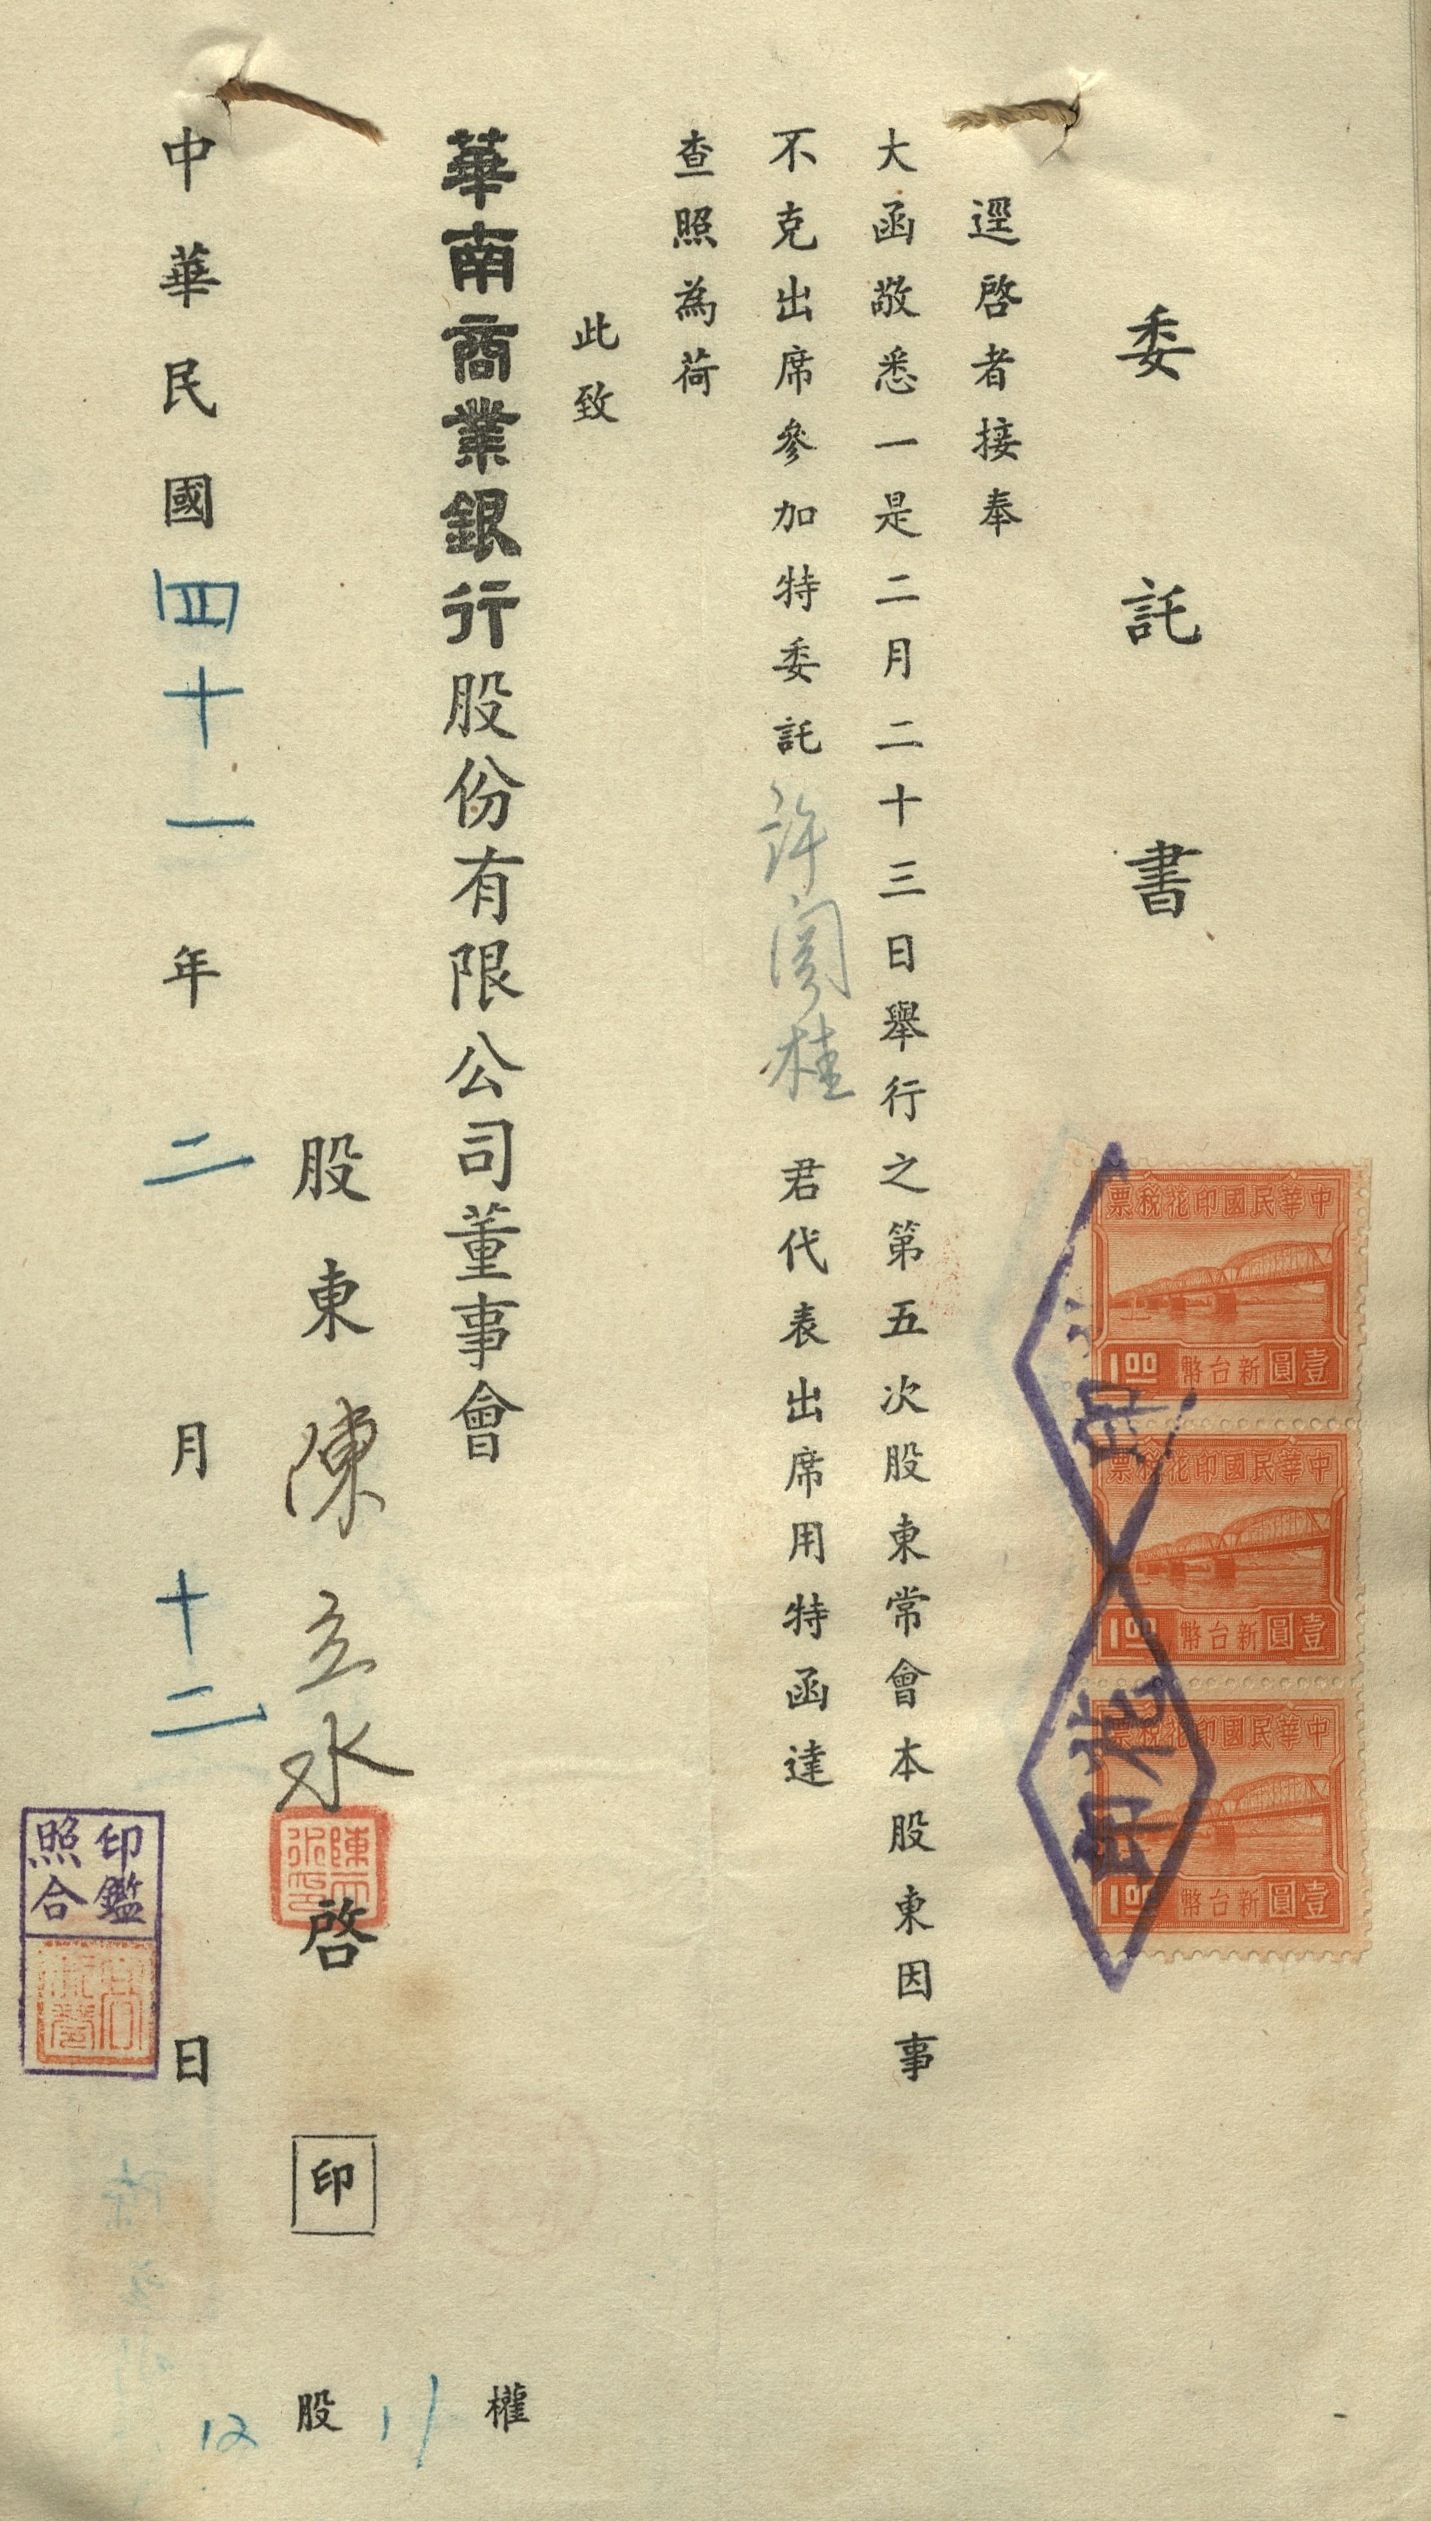 委託書
逕啓者接奉
大函敬悉一是二月二十三日舉行之第五次股東常會本股東因事
不克出席參加特委託許桂君代表出席用特函達
查照為荷
此致
華南商業銀行股份有限公司董事會
股東陳立水啓
印
中華民國四十一年二月十二日
印鑑
照合
權
11
股
12
中華民國印花稅票
壹圓新台幣
1.00
中華民國印花稅票
壹圓新台幣
1.00
中華民國印花稅票
壹圓新台幣
1.00